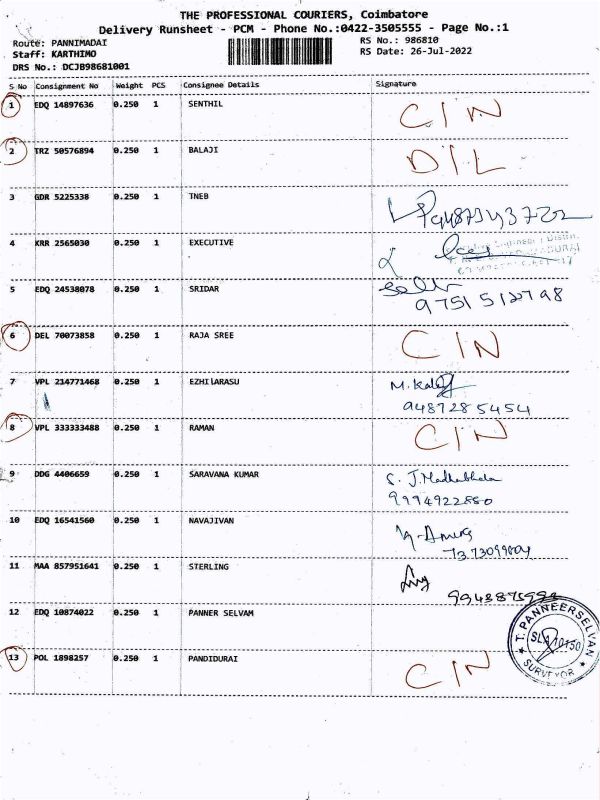 THE PROFESSIONAL COURIERS, Coimbatore
Delivery Runsheet - PCM - Phone No.:0422-3505555 - Page No.:1
Route: PANNIMADAI
Staff: KARTHIMO
DRS No.: DCJB98681001
RS No.: 986810
RS Date: 26-Jul-2022
S No Consignment No Weight PCS Consignee Details Signature
1 EDQ 14897636 0.250 1 SENTHIL CIN
2 TRZ 50576894 0.250 1 BALAJI DIL
3 GDR 5225338 0.250 1 TNEB
4 KRR 2565030 0.250 1 EXECUTIVE
5 EDQ 24538078 0.250 1 SRIDAR
9751512798
6 DEL 70073858 0.250 1 RAJA SREE CIN
7 VPL 214771468 0.250 1 EZHILARASU
9487285454
8 VPL 333333488 0.250 1 RAMAN CIN
9 DDG 4406659 0.250 1 SARAVANA KUMAR
9994922880
10 EDQ 16541560 0.250 1 NAVAJIVAN
11 MAA 857951641 0.250 1 STERLING
12 EDQ 10874022 0.250 1 PANNER SELVAM
T. PANNEERSELVAN
SURVEYOR
13 POL 1898257 0.250 1 PANDIDURAI CIN